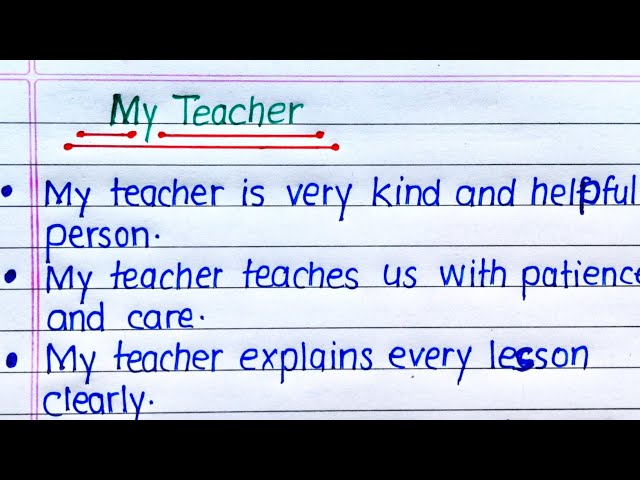 My Teacher
• My teacher is very kind and helpful
person.
• My teacher teaches us with patience
and care.
• My teacher explains every lesson
clearly.